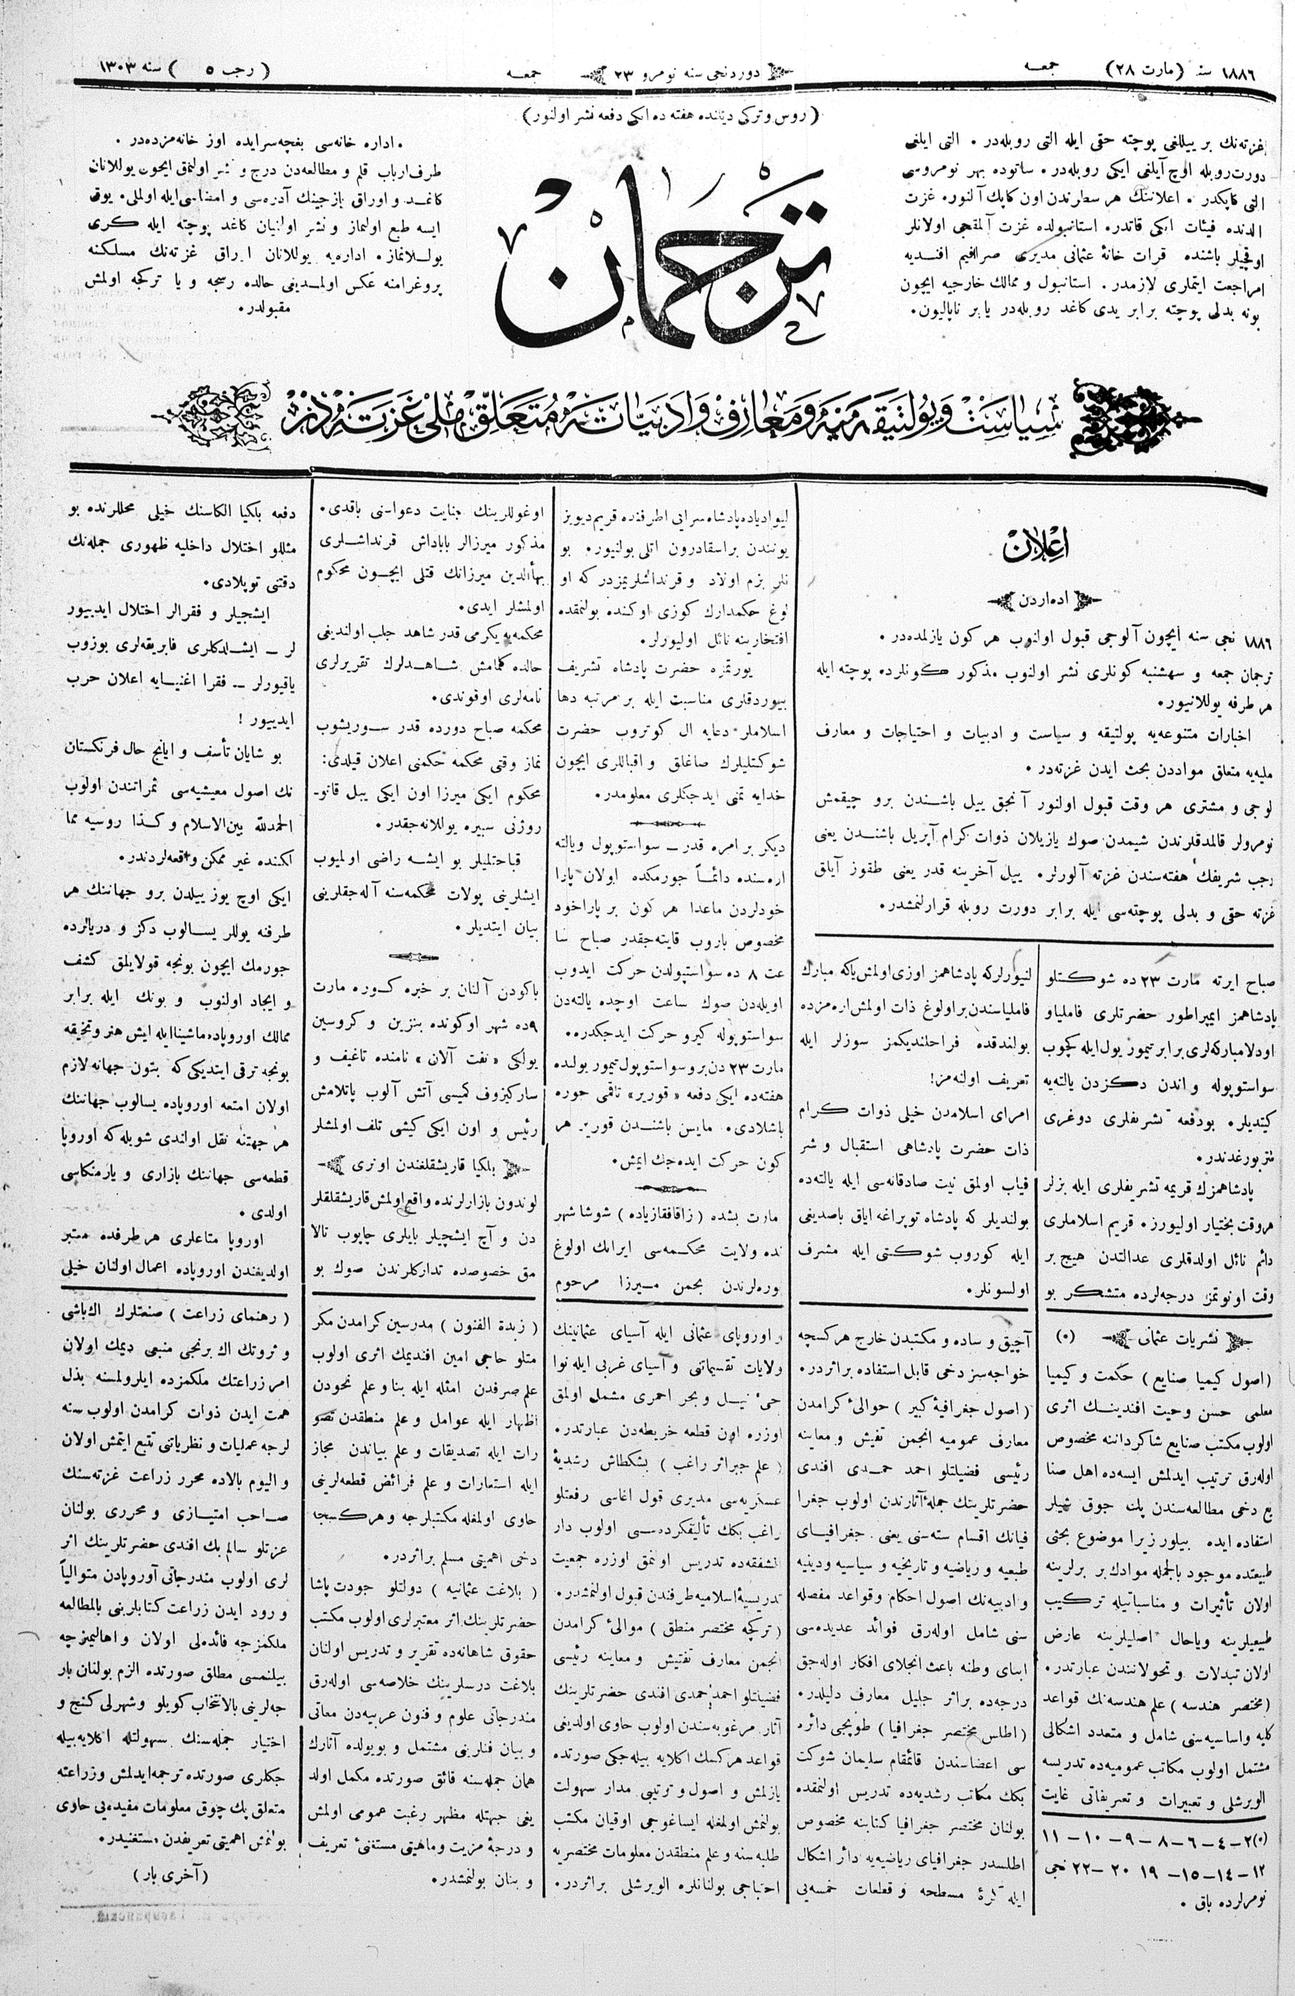 ١٨٨٦ سنه (مارت ٢٨) جمعه
دوردنجی سنه نومرو ٢٣
جمعه
(رجب ٥) سنه ١٣٠٣
(روس و ترکی دیلنده هفته ده ایکی دفعه نشر اولنور)
غزته‌نك بر ییللغی پوچته حقی ایله التی روبله‌در . التی ایلغی
دورت روبله اوچ آیلغی ایکی روبله‌در . ساتوده بهر نومروسی
التی کاپکدر . اعلاننك هر سطرندن اون کاپك آلنور . غزت
الدنده فیئات ایکی قاتدر . استانبولده غزت آلمقجی اولانلر
اوقچیلر باشنده قرات خانۀ عثمانی مدیری صرافیم افندیه
مراجعت ایتملری لازمدر . استانبول و ممالك خارجیه ایچون
بونه بدلی پوچته برابر یدی کاغد روبله‌در یا بر ناپالیون .
ترجمان
. اداره خانه‌سی بغچه‌سرایده اوز خانه‌مزده‌در .
طرف ارباب قلم و مطالعه‌دن درج و نشر اولنمق ایچون یوللانان
کاغد و اوراق یازجینك آدره‌سی و امضاسی ایله اولملی . یوق
ایسه طبع اولنماز و نشر اولنمان کاغد پوچته ایله کری
یوللانماز . اداره‌یه یوللانان اوراق غزته‌نك مسلكنه
پروغرامنه عکس اولمدیغی حالده رسجه و یا ترکجه اولمش
مقبولدر .
سیاست و پولتیقه مدنیه و معارف و ادبیات‌ه متعلق ملی غزته‌در
اعلان
اداره‌دن
١٨٨٦ نجی سنه ایچون آلوجی قبول اولنوب هر کون یازلمده‌در .
ترجمان جمعه و سه‌شنبه کونلری نشر اولنوب مذکور کونلرده پوچته ایله
هر طرفه یوللانیور .
اخبارات متنوعه‌یه پولتیقه و سیاست و ادبیات و احتیاجات و معارف
ملیه‌یه متعلق مواددن بحث ایدن غزته‌در .
لوجی و مشتری هر وقت قبول اولنور آنجق ییل باشندن برو چیقمش
نومرولر قالمدقلرندن شیمدن صوك یازیلان ذوات کرام آپریل باشندن یعنی
رجب شریفك هفته‌سندن غزته آلورلر . ییل آخرینه قدر یعنی طقوز آیلق
غزته حقی و بدلی پوچته‌سی ایله برابر دورت روبله قرارلنمشدر .
صباح ایرته مارت ٢٣ ده شوکتلو
پادشاهمز ایمپراطور حضرتلری فامیلیاو
اولاد مبارکه‌لری برابر تیمور یول ایله کچوب
سواستوپوله و اندن دکزدن یالته‌یه
کیتدیلر . بودفعه تشریفلری دوغری
پتربورغدندر .
پادشاهمزك قریمه تشریفلری ایله بزلر
هر وقت بختیار اولیورز . قریم اسلاملری
دائم نائل اولدقلری عدالتدن هیچ بر
وقت اونوتمز درجه‌لرده متشکر بو
لنیورلر که پادشاهمز اوزی اولمش یاکه مبارك
فامیلیاسندن بر اولوغ ذات اولمش اره‌مزده
بولندقده فراحلندیکمز سوزلر ایله
تعریف اولنه‌مز!
امرای اسلامدن خیلی ذوات کرام
ذات حضرت پادشاهی استقبال و شر
فیاب اولمق نیت صادقانه‌سی ایله یالته‌ده
بولندیلر که پادشاه توپراغه ایاق باصدیغی
ایله کوروب شوکتی ایله مشرف
اولسونلر .
لیوادیاده پادشاه سرایی اطرفنده قریم دیویز
یونندن بر اسقادرون اتلی بولنیور . بو
نلر بزم اولاد و قرنداشلریمزدر که او
لوغ حکمدارك کوزی اوکنده بولنمقده
افتخارینه نائل اولیورلر .
یورتمزه حضرت پادشاه تشریف
بیوردقلری مناسبت ایله بر مرتبه دها
اسلاملر دعایه ال کوتروب حضرت
شوکتلیلرك صاغلق و اقباللری ایچون
خدایه تمنی ایدجکلری معلومدر .
دیکر بر امره قدر ــ سواستوپول و یالته
اره‌سنده دائماً جورمکده اولان پارا
خودلردن ماعدا هر کون بر پاراخود
مخصوص باروب قایته‌جقدر صباح سا
عت ٨ ده سواستپولدن حرکت ایدوب
اویله‌دن صوك ساعت اوچده یالته‌دن
سواستوپوله کیرو حرکت ایدجکدر .
مارت ٢٣ دن برو سواستوپول تیمور یولنده
هفته‌ده ایکی دفعه «قوریر» ناقمی جوره
باشلادی . مایس باشندن قوریر هر
کون حرکت ایده‌جك ایمش .
مارت بشده (زاقافقازیاده) شوشا شهر
نده ولایت محکمه‌سی ایرانك اولوغ
وره‌لرندن بحمن میرزا مرحوم
اوغوللرینك جنایت دعواسنی باقدی .
مذکور میرزالر باباداش قرنداشلری
بهاألدین میرزانك قتلی ایچون محکوم
اولمشلر ایدی .
محکمه‌یه یکرمی قدر شاهد جلب اولندیغی
حالده کلمامش شاهدلرك تقریرلری
نامه‌لری اوقوندی .
محکمه صباح دورده قدر سوریشوب
نماز وقتی محکمه حکمنی اعلان قیلدی :
محکوم ایکی میرزا اون ایکی ییل قانو ـ
روژنی سبیره یوللانه‌جقدر .
قباحتلیلر بو ایشه راضی اولمیوب
ایشلرینی پولات محکمه‌سنه آله‌جقلرینی
بیان ایتدیلر .
باکودن آلنان بر خبره کوره مارت
٩ده شهر اوکونده بنزین و کروسین
یولکی «نفت آلان» نامنده تاغیف و
سارکیزوف کمیسی آتش آلوب پاتلامش
رئیس و اون ایکی کیشی تلف اولمشلر
بلکیا قاریشقلغندن اوتری
لوندون بازارلرنده واقع اولمش قاریشقلقلر
دن و آج ایشچیلر بایلری چاپوب تالا
مق خصوصده تدارکلرندن صوك بو
دفعه بلکیا الکاسنك خیلی محللرنده بو
مثللو اختلال داخلیه ظهوری جمله‌نك
دقتنی توپلادی .
ایشجیلر و فقرالر اختلال ایدییور
لر ــ ایشلدکلری فابریقه‌لری بوزوب
یاقیورلر ــ فقرا اغنیایه اعلان حرب
ایدییور !
بو شایان تأسف و ایانج حال فرنکستان
نك اصول معیشیه‌سی ثمراتندن اولوب
الحمدلله بین‌الاسلام و کذا روسیه مما
لکنده غیر ممکن وقعه‌لردندر .
ایکی اوچ یوز ییلدن برو جهاننك هر
طرفنه یوللر یسالوب دکز و دریالرده
جورمك ایچون بونجه قولایلمق کشف
و ایجاد اولنوب و بونك ایله برابر
ممالك اوروپاده ماشینا ایله ایش هنر و تخیقه
بونجه ترقی ایتدیکی که بتون جهانه لازم
اولان امتعه اوروپاده یسالوب جهاننك
هر جهتنه نقل اولندی شویله که اوروپا
قطعه‌سی جهاننك بازاری و یارمنکاسی
اولدی .
اوروپا متاعلری هر طرفده معتبر
اولدیغندن اوروپاده اعمال اولنان خیلی
نشریات عثمانی (٠)
(اصول کیمیا صنایع) حکمت و کیمیا
معلمی حسن وحیت افندینك اثری
اولوب مکتب صنایع شاکرداننه مخصوص
اوله‌رق ترتیب ایدلمش ایسه‌ده اهل صنا
یع دخی مطالعه‌سندن پك چوق شیلر
استفاده ایده بیلور زیرا موضوع بحثی
طبیعتده موجود بالجمله موادك بر برلرینه
اولان تأثیرات و مناسباتیله ترکیب
طبیعیلرینه و یا حال اصلیلرینه عارض
اولان تبدلات و تحولاتندن عبارتدر .
(مختصر هندسه) علم هندسه‌نك قواعد
کلیه و اساسیه‌سنی شامل و متعدد اشکالی
مشتمل اولوب مکاتب عمومیه‌ده تدریسه
الویرشلی و تعبیرات و تعریفاتی غایت
(٠) ٢ــ٤ــ٦ــ٨ــ٩ــ١٠ــ١١
١٢ــ١٤ــ١٥ــ١٩ ٢٠ــ٢٢ نجی
نومرلرده باق .
آچیق و ساده و مکتبدن خارج هرکسچه
خواجه‌سز دخی قابل استفاده بر اثردر .
(اصول جغرافیۀ کبیر) حوالئ کرامدن
معارف عمومیه انجمن تفتیش و معاینه
رئیسی فضیلتلو احمد حمدی افندی
حضرتلرینك جملۀ آثارندن اولوب جغرا
فیانك اقسام سته‌سنی یعنی جغرافیای
طبعیه و ریاضیه و تاریخیه و سیاسیه و دینیه
و ادبیه‌نك اصول احکام و قواعد مفصله
سنی شامل اوله‌رق فوائد عدیده‌سی
ابنای وطنه باعث انجلای افکار اوله‌جق
درجه‌ده بر اثر جلیل معارف دلیلدر .
(اطلس مختصر جغرافیا) طوپجی دائره
سی اعضاسندن قائمقام سلیمان شوکت
بكك مکاتب رشدیه‌ده تدریس اولنمقده
بولنان مختصر جغرافیا کتابنه مخصوص
اطلسدر جغرافیای ریاضیه‌یه دائر اشکال
ایله کرۀ مسطحه و قطعات خمسه‌یی
و اوروپای عثمانی ایله آسیای عثمانینك
ولایات تقسیماتی و آسیای غربی ایله نوا
حیٔ نیل و بحر احمری مشمل اولمق
اوزره اون قطعه خریطه‌دن عبارتدر .
(علم جبراثر راغب) بشکطاش رشدیۀ
عسکریه‌سی مدیری قول اغاسی رفعتلو
راغب بكك تألیفکرده‌سی اولوب دار
الشفقه‌ده تدریس اولنمق اوزره جمعیت
تدریسیۀ اسلامیه طرفندن قبول اولنمشدر .
(ترکچه مختصر منطق) موالئ کرامدن
انجمن معارف تفتیش و معاینه رئیسی
فضیلتلو احمد حمدی افندی حضرتلرینك
آثار مرغوبه‌سندن اولوب حاوی اولدیغی
قواعد هر کسك اکلایه بیله‌جکی صورتده
یازلمش و اصول و ترتیبی مدار سهولت
بولنمش اولمغله ایساغوجی اوقیان مکتب
طلبه‌سنه و علم منطقدن معلومات مختصریه
احتیاجی بولنانلره الویرشلی بر اثردر .
(زبدة الفنون) مدرسین کرامدن مکر
متلو حاجی امین افندیمك اثری اولوب
علم صرفدن امثله ایله بنا و علم نحودن
اظهار ایله عوامل و علم منطقدن تصو
رات ایله تصدیقات و علم بیاندن مجاز
ایله استعارات و علم فرائض قطعه‌لرینی
حاوی اولمغله مکتبلرجه و هر کسجه
دخی اهمیتی مسلم بر اثردر .
(بلاغت عثمانیه) دولتلو جودت پاشا
حضرتلرینك اثر معتبرلری اولوب مکتب
حقوق شاهانه‌ده تقریر و تدریس اولنان
بلاغت درسلرینك خلاصه‌سی اوله‌رق
مندرجاتی علوم و فنون عربیه‌دن معانی
و بیان فنلرینی مشتمل و بویولده آثارك
همان جمله‌سنه فائق صورتده مکمل اولد
یغی جهتله مظهر رغبت عمومی اولمش
و درجۀ مزیت و ماهیتی مستغنئ تعریف
و بیان بولنمشدر .
(رهنمای زراعت) صنعتلرك اك باشی
و ثروتك اك برنجی منبعی دیمك اولان
امر زراعتك ملکمزده ایلرولمسنه بذل
همت ایدن ذوات کرامدن اولوب سنه
لرجه عملیات و نظریاتنی تتبع ایتمش اولان
و الیوم بالاده محرر زراعت غزته‌سنك
صاحب امتیازی و محرری بولنان
عزتلو سالم بك افندی حضرتلرینك اثر
لری اولوب مندرجاتی آوروپادن متوالیاً
ورود ایدن زراعت کتابلرینی بالمطالعه
ملکمزجه فائده‌لی اولان و اهالیمزچه
بیلنمسی مطلق صورتده الزم بولنان بار
جه‌لرینی بالانتخاب کویلو و شهرلی کنج و
اختیار جمله‌سنك سهولتله اکلایه‌بیله
جکلری صورتده ترجمه ایدلمش و زراعته
متعلق پك چوق معلومات مفیده‌یی حاوی
بولنمش اهمیتی تعریفدن مستغنیدر .
(آخری بار)